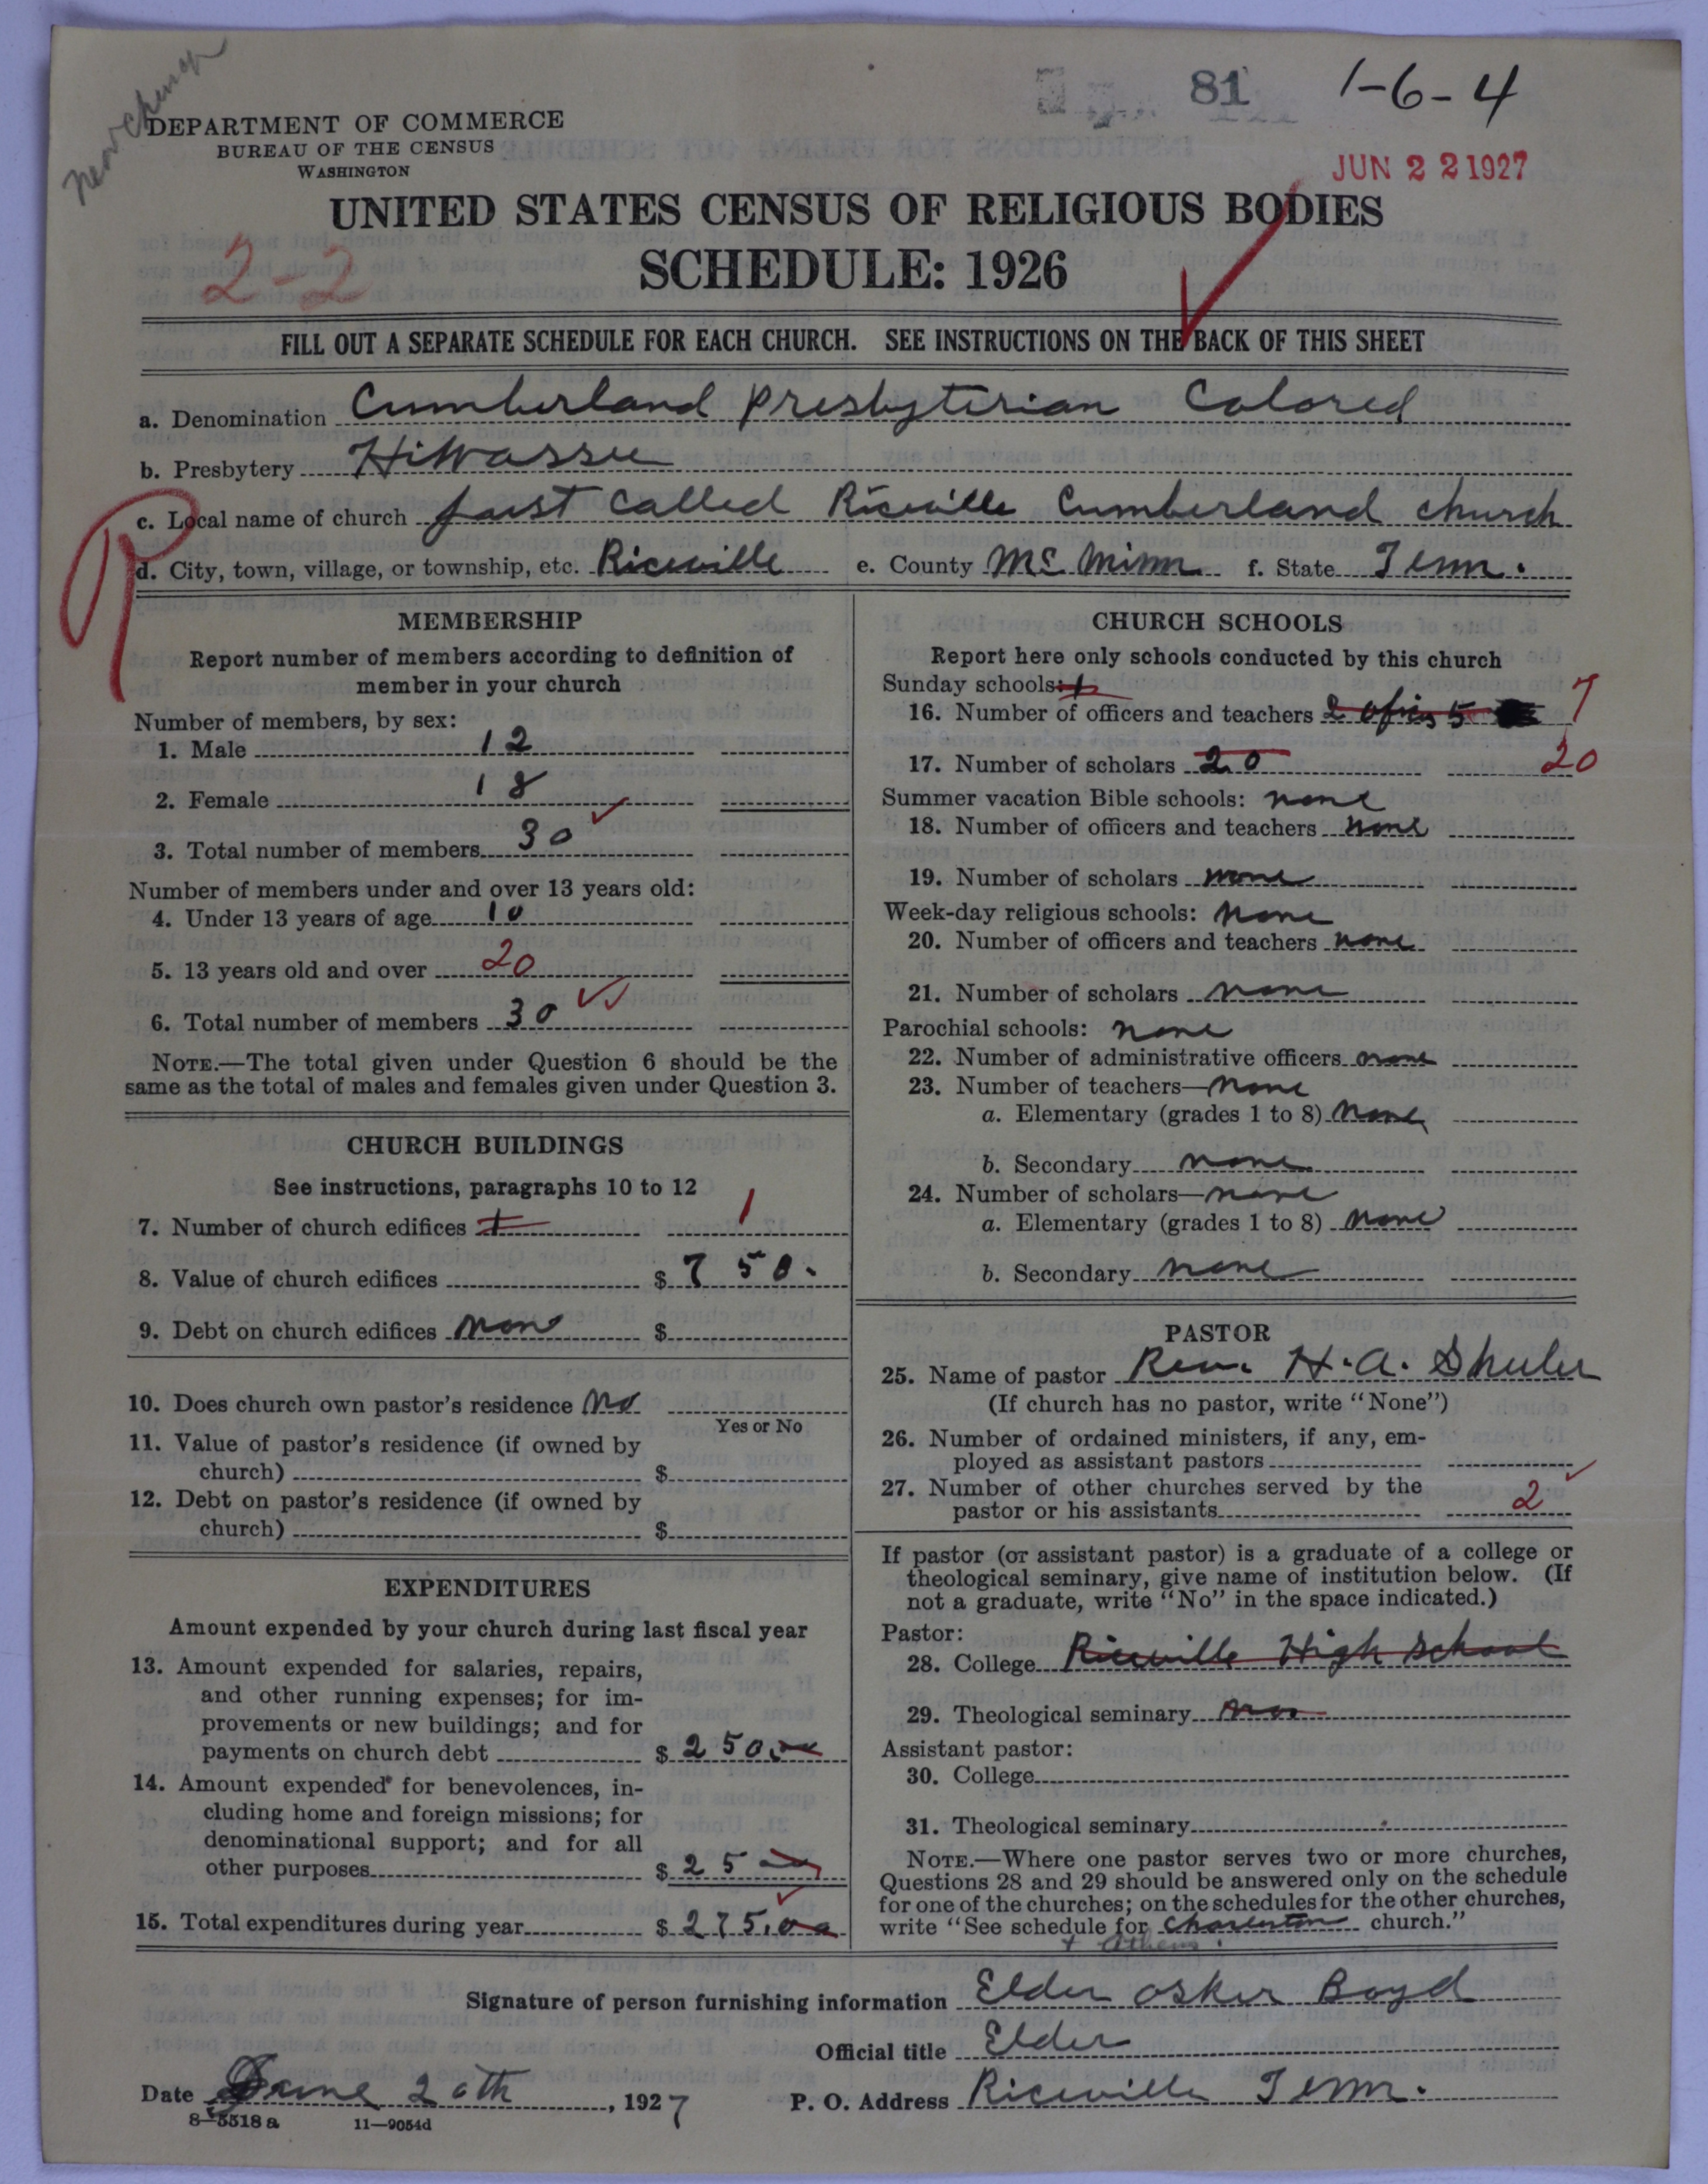 81 1-6-4
DEPARTMENT OF COMMERCE
BUREAU OF THE CENSUS
WASHINGTON
JUN 22 1927
UNITED STATES CENSUS OF RELIGIOUS BODIES
2-2
SCHEDULE: 1926
FILL OUT A SEPARATE SCHEDULE FOR EACH CHURCH. SEE INSTRUCTIONS ON THE BACK OF THIS SHEET
a. Denomination Cumberland Presbyterian Colored
b. Presbytery Hiwassee
c. Local name of church just called Riceville Cumberland church
d. City, town, village, or township, etc. Riceville e. County Mc Minn f. State Tenn.
R
MEMBERSHIP
Report number of members according to definition of
member in your church
Number of members, by sex:
1. Male 12
2. Female 18
3. Total number of members 30
Number of members under and over 13 years old:
4. Under 13 years of age 10
5. 13 years old and over 20
6. Total number of members 30
NOTE.—The total given under Question 6 should be the
same as the total of males and females given under Question 3.
CHURCH BUILDINGS
See instructions, paragraphs 10 to 12
7. Number of church edifices 1 1
8. Value of church edifices $ 750.
9. Debt on church edifices non $
10. Does church own pastor's residence No
Yes or No
11. Value of pastor's residence (if owned by
church) $
12. Debt on pastor's residence (if owned by
church) $
EXPENDITURES
Amount expended by your church during last fiscal year
13. Amount expended for salaries, repairs,
and other running expenses; for im-
provements or new buildings; and for
payments on church debt $ 250.00
14. Amount expended for benevolences, in-
cluding home and foreign missions; for
denominational support; and for all
other purposes $ 25
15. Total expenditures during year $ 275.00
CHURCH SCHOOLS
Report here only schools conducted by this church
Sunday schools: 1
16. Number of officers and teachers 2 ofics 5 7
17. Number of scholars 20 20
Summer vacation Bible schools: none
18. Number of officers and teachers none
19. Number of scholars none
Week-day religious schools: none
20. Number of officers and teachers none
21. Number of scholars none
Parochial schools: none
22. Number of administrative officers none
23. Number of teachers—none
a. Elementary (grades 1 to 8) none
b. Secondary none
24. Number of scholars—none
a. Elementary (grades 1 to 8) none
b. Secondary none
PASTOR
25. Name of pastor Rev. H. A. Shuler
(If church has no pastor, write "None")
26. Number of ordained ministers, if any, em-
ployed as assistant pastors
27. Number of other churches served by the
pastor or his assistants 2
If pastor (or assistant pastor) is a graduate of a college or
theological seminary, give name of institution below. (If
not a graduate, write "No" in the space indicated.)
Pastor:
28. College Riceville High School
29. Theological seminary
Assistant pastor:
30. College
31. Theological seminary
NOTE.—Where one pastor serves two or more churches,
Questions 28 and 29 should be answered only on the schedule
for one of the churches; on the schedules for the other churches,
write "See schedule for Charenton church."
+ Athens.
Signature of person furnishing information Elder Osker Boyd
Official title Elder
Date June 20th, 1927 P. O. Address Riceville Tenn.
8-5518 a 11-9054d